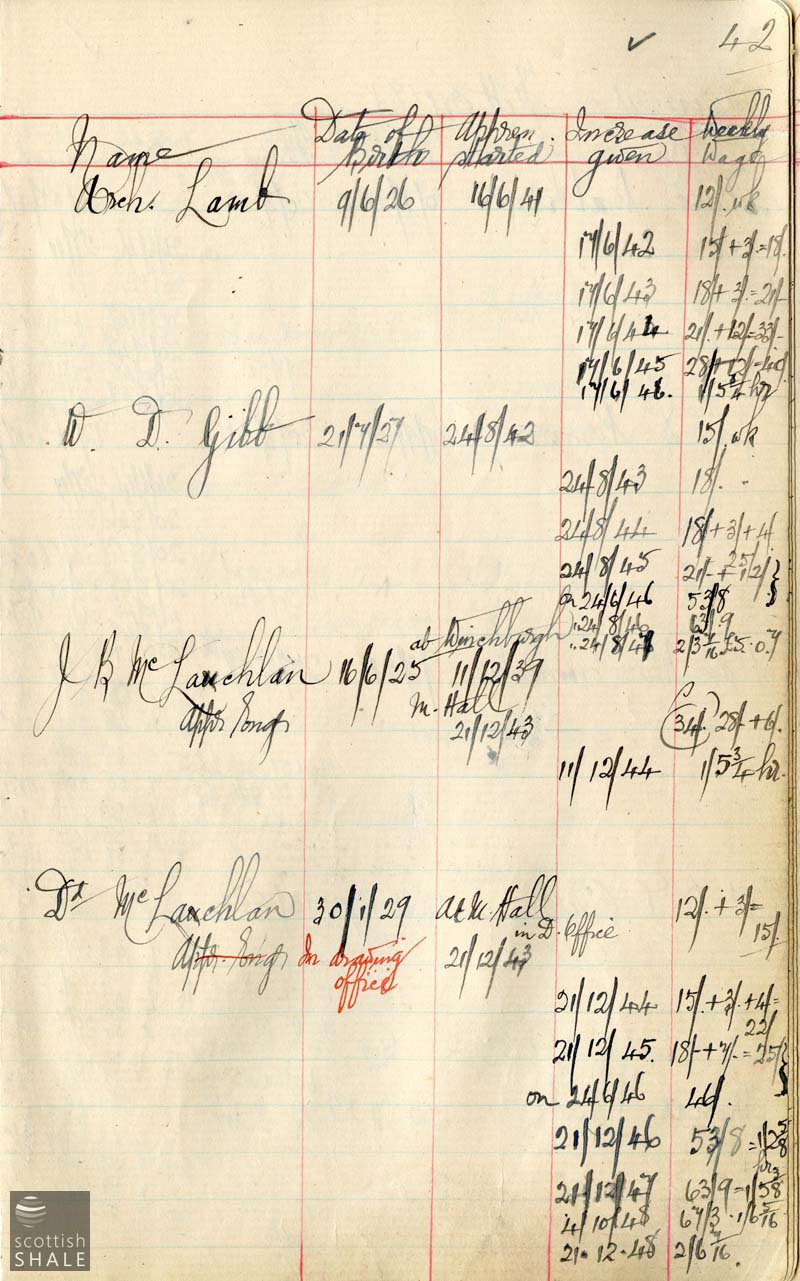 ✓ 42
Name Date of Birth Appren. started Increase given Weekly Wage
Arch. Lamb 9/6/26 16/6/41 12/. wk
17/6/42 15/. + 3/. = 18/.
17/6/43 18/+ 3/. = 21/-
17/6/44 21/. + 12/= 33/-
17/6/45 28/+12/=40/.
17/6/46. 1/5¾ hr
W. D. Gibb 21/7/27 24/8/42 15/. wk
24/8/43 18/. "
24/8/44 18/+3/+4/
25/
24/8/45 21/- + 12/ }
on 24/6/46 53/8
" 24/8/46 63/.9
at Winchburgh " 24/8/47
J K McLauchlan 16/6/25 11/12/39
Appr Eng M. Hall
21/12/43 34/. 28/- + 6/.
11/12/44 1/5¾ hr.
Dd McLauchlan 30/1/29 At M. Hall 12/. + 3/=
in D. Office 15/.
Appr. Eng In drawing office 21/12/43
21/12/44 15/. + 3/. + 4/=
22/
21/12/45. 18/- + 7/. = 25/ }
on 24/6/46 46/.
21/12/46 53/8 = 1/2⅝
hr
21/12/47 63/9 = 1/5⅜
4/10/48 67/3
21.12.48 2/6 7/16.
scottish
SHALE